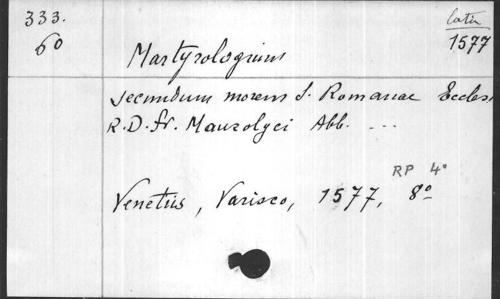 333.
60
latin
1577
Martyrologium
secundum morem S. Romanae Eccles
R.D. fr. Maurolyci Abb. ...
RP 4°
Venetiis, Varisco, 1577, 8°